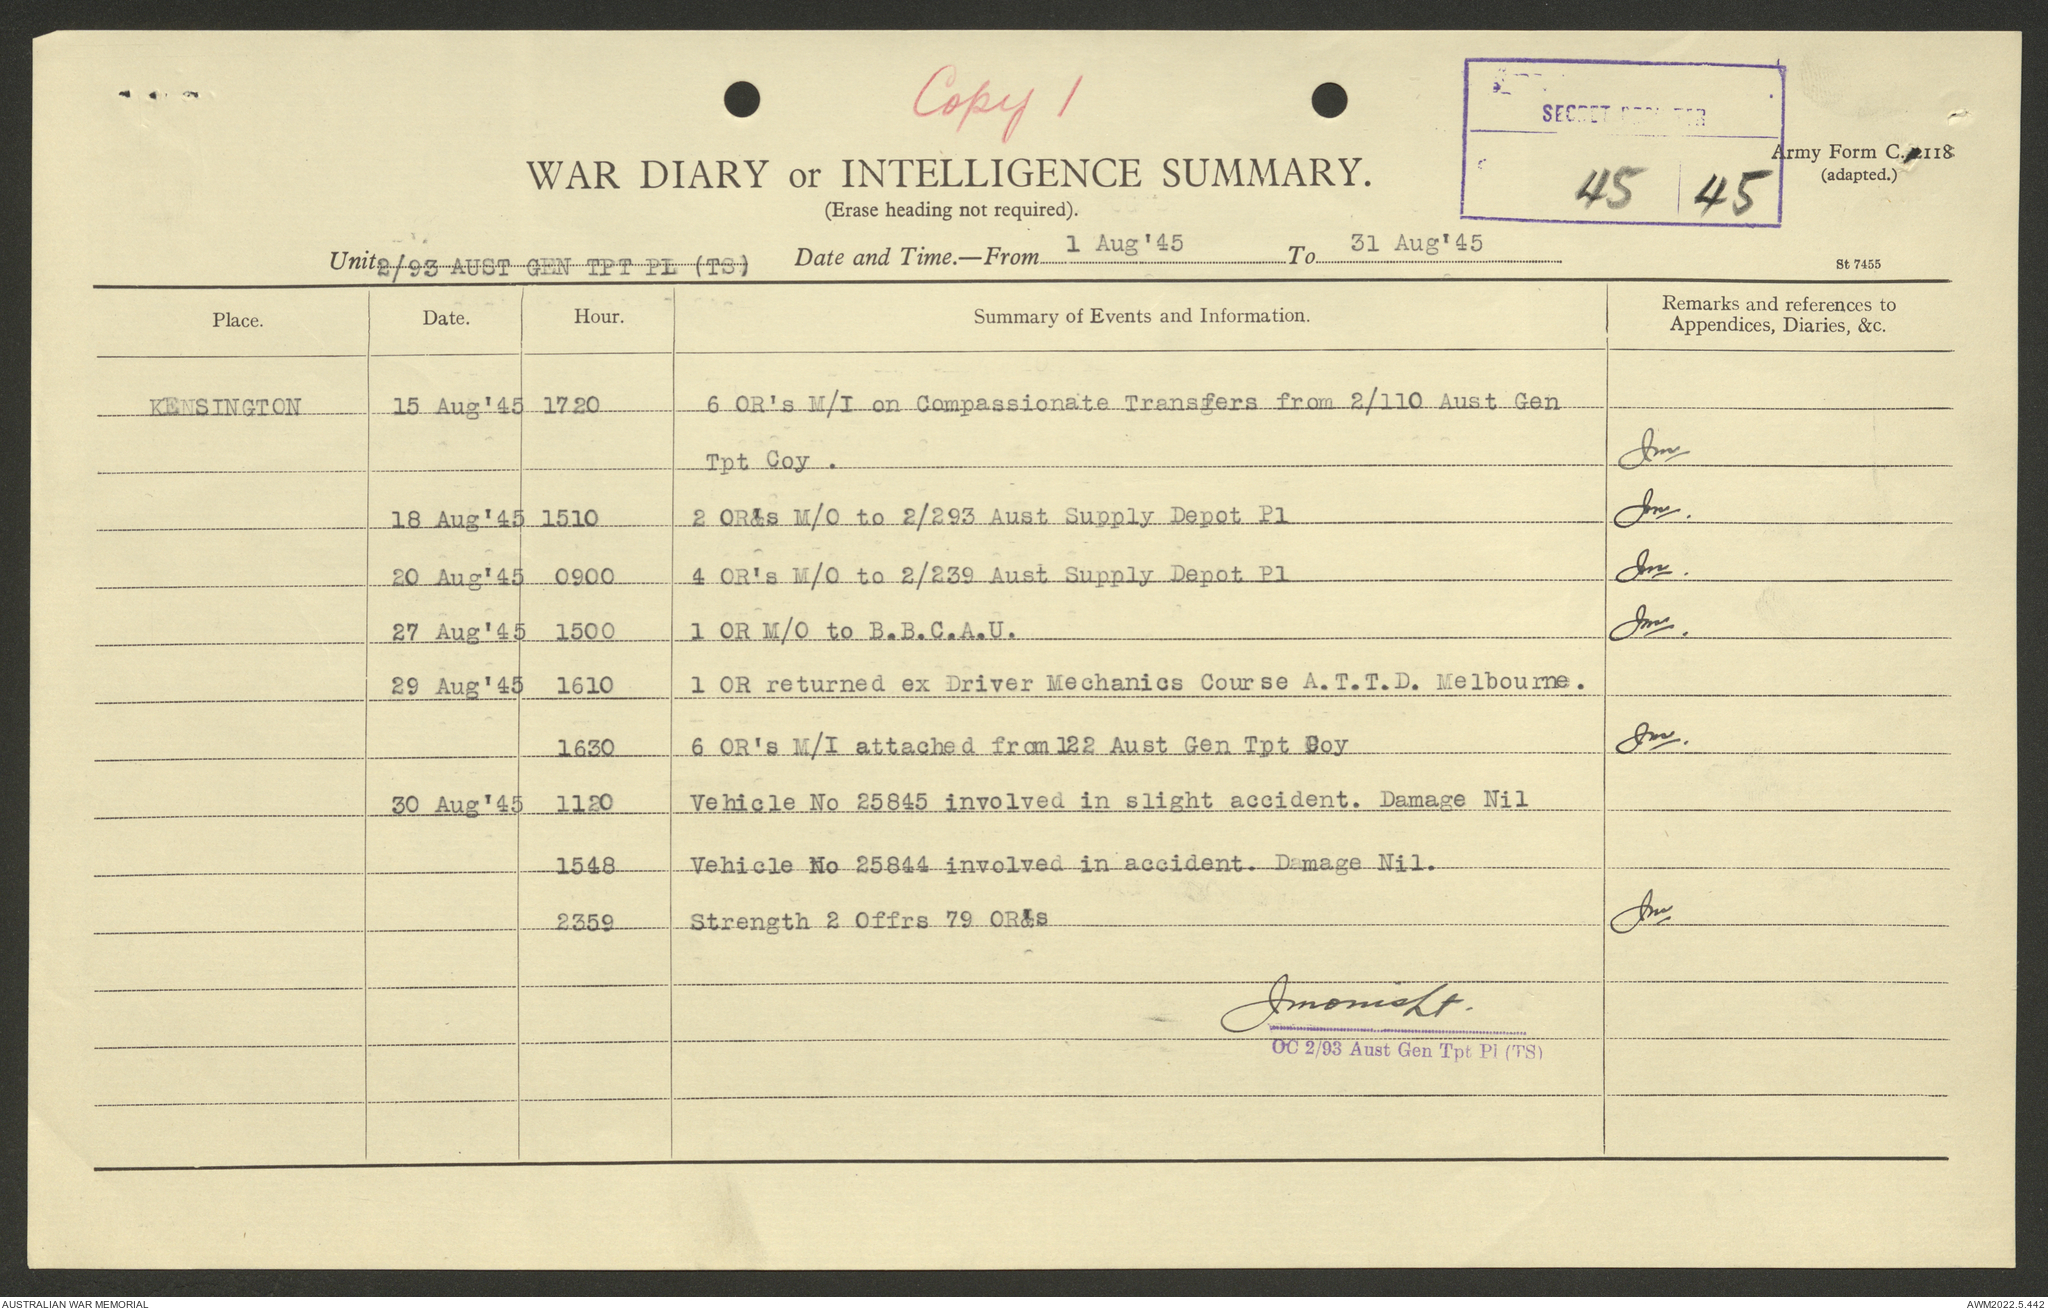 Copy 1
SECRET REGISTER
45 45
Army Form C.2118
(adapted.)
WAR DIARY or INTELLIGENCE SUMMARY.
(Erase heading not required).
Unit 2/93 AUST GEN TPT PL (TS) Date and Time.—From 1 Aug'45 To 31 Aug'45
St 7455
Place. Date. Hour. Summary of Events and Information. Remarks and references to
Appendices, Diaries, &c.
KENSINGTON 15 Aug'45 1720 6 OR's M/I on Compassionate Transfers from 2/110 Aust Gen
Tpt Coy . Jm
18 Aug'45 1510 2 OR's M/O to 2/293 Aust Supply Depot Pl Jm.
20 Aug'45 0900 4 OR's M/O to 2/239 Aust Supply Depot Pl Jm.
27 Aug'45 1500 1 OR M/O to B.B.C.A.U. Jm.
29 Aug'45 1610 1 OR returned ex Driver Mechanics Course A.T.T.D. Melbourne.
1630 6 OR's M/I attached from 122 Aust Gen Tpt Coy Jm.
30 Aug'45 1120 Vehicle No 25845 involved in slight accident. Damage Nil
1548 Vehicle No 25844 involved in accident. Damage Nil.
2359 Strength 2 Offrs 79 OR's Jm
Lt.
OC 2/93 Aust Gen Tpt Pl (TS)
AUSTRALIAN WAR MEMORIAL AWM2022.5.442